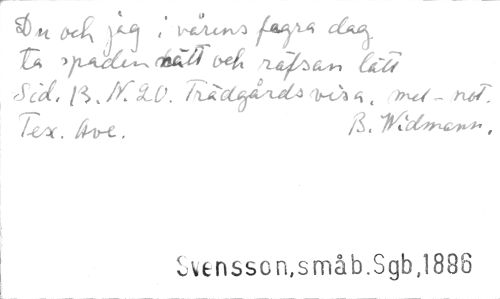 Du och jag i vårens fagra dag
ta spaden nätt och räfsan lätt
Sid. 13. N. 20. Trädgårdsvisa. mel-not.
Tex. Ave. B. Widmann.
Svensson,småb.Sgb,1886